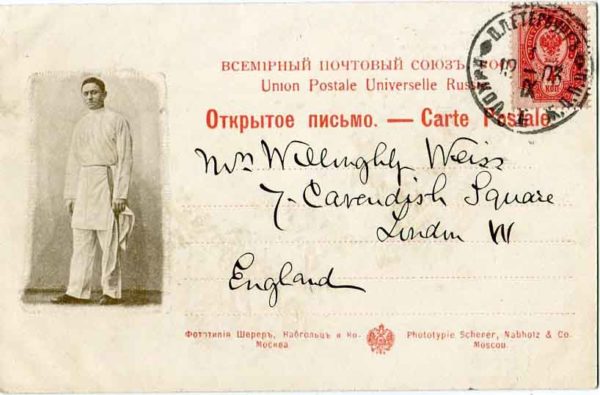 ВСЕМІРНЫЙ ПОЧТОВЫЙ СОЮЗЪ.
Union Postale Universelle Russie
Открытое письмо. — Carte Postale
Mrs Willoughby Weiss
7 Cavendish Square
London W
England
Фототипія Шереръ, Набгольцъ и Ко.
Москва
Phototypie Scherer, Nabholz & Co.
Moscou.